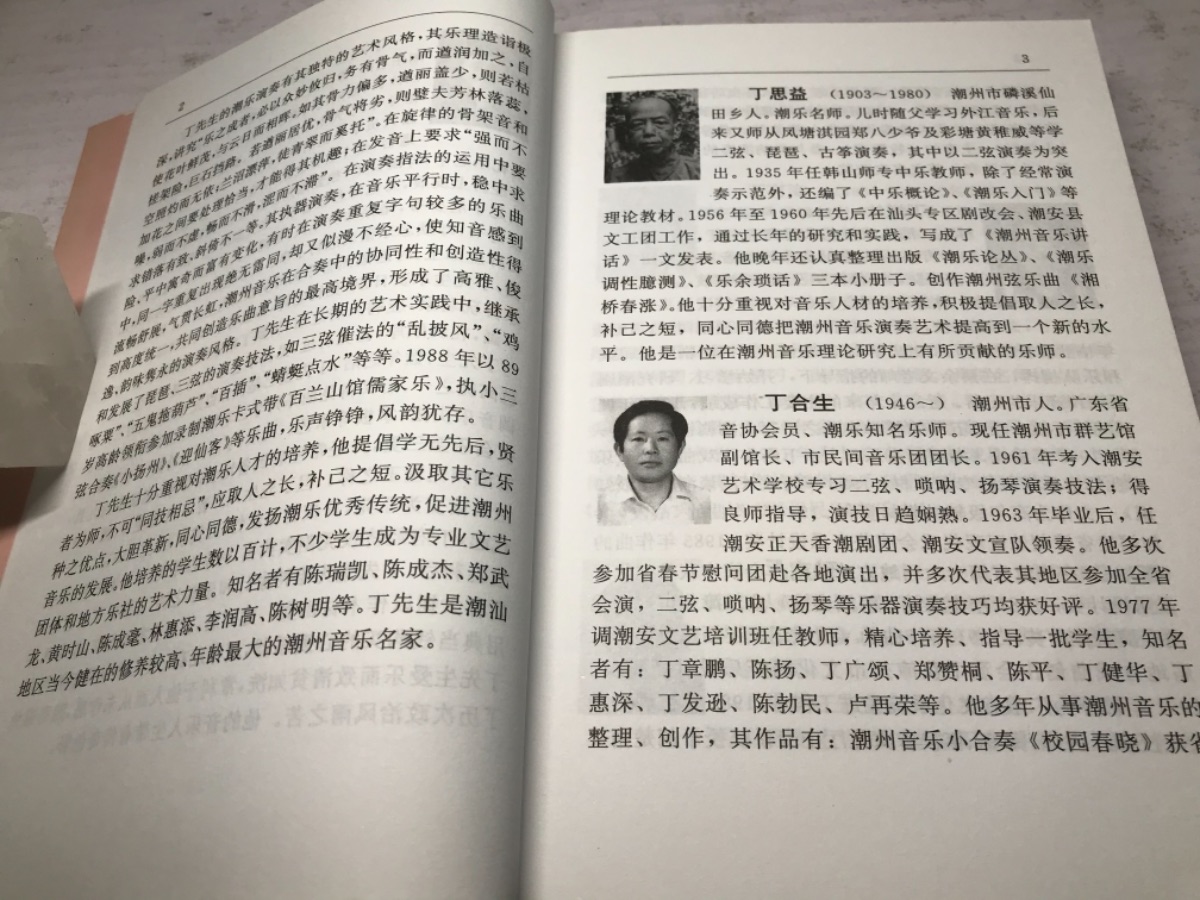 2
丁先生的潮乐演奏有其独特的艺术风格，其乐理造诣极
深，讲究“乐之成者，必以众妙攸归，务有骨气，而遒润加之，自
使花叶鲜茂，与云日而相晖。如其骨力偏多，遒丽盖少，则若枯
槎架险，巨石挡路。若遒丽居优，骨气将劣，则壁夫芳林落蕊，
空照灼而无依；兰沼漂萍，徒青翠而奚托”。在旋律的骨架音和
加花之间要处理恰当，才能得其机趣；在发音上要求“强而不
噪，弱而不虚，畅而不滑，涩而不滞”。在演奏指法的运用中要
求错落有致、斜倚不一等。其执器演奏，在音乐平行时，稳中求
险，平中寓奇而富有变化，有时在演奏重复字句较多的乐曲
中，同一字重复出现绝无雷同，却又似漫不经心，使知音感到
流畅舒展，气贯长虹，潮州音乐在合奏中的协同性和创造性得
到高度统一，共同创造乐曲意旨的最高境界，形成了高雅、俊
逸、韵味隽永的演奏风格。丁先生在长期的艺术实践中，继承
和发展了琵琶、三弦的演奏技法，如三弦催法的“乱披风”、“鸡
啄粟”、“五鬼拖葫芦”、“百插”、“蜻蜓点水”等等。1988年以89
岁高龄领衔参加录制潮乐卡式带《百兰山馆儒家乐》，执小三
弦合奏《小扬州》、《迎仙客》等乐曲，乐声铮铮，风韵犹存。
丁先生十分重视对潮乐人才的培养，他提倡学无先后，贤
者为师，不可“同技相忌”，应取人之长，补己之短。汲取其它乐
种之优点，大胆革新，同心同德，发扬潮乐优秀传统，促进潮州
音乐的发展。他培养的学生数以百计，不少学生成为专业文艺
团体和地方乐社的艺术力量。知名者有陈瑞凯、陈成杰、郑武
龙、黄时山、陈成毫、林惠添、李润高、陈树明等。丁先生是潮汕
地区当今健在的修养较高、年龄最大的潮州音乐名家。
3
丁思益 （1903～1980） 潮州市磷溪仙
田乡人。潮乐名师。儿时随父学习外江音乐，后
来又师从凤塘淇园郑八少爷及彩塘黄稚威等学
二弦、琵琶、古筝演奏，其中以二弦演奏为突
出。1935年任韩山师专中乐教师，除了经常演
奏示范外，还编了《中乐概论》、《潮乐入门》等
理论教材。1956年至1960年先后在汕头专区剧改会、潮安县
文工团工作，通过长年的研究和实践，写成了《潮州音乐讲
话》一文发表。他晚年还认真整理出版《潮乐论丛》、《潮乐
调性臆测》、《乐余琐话》三本小册子。创作潮州弦乐曲《湘
桥春涨》。他十分重视对音乐人材的培养，积极提倡取人之长，
补己之短，同心同德把潮州音乐演奏艺术提高到一个新的水
平。他是一位在潮州音乐理论研究上有所贡献的乐师。
丁合生 （1946～） 潮州市人。广东省
音协会员、潮乐知名乐师。现任潮州市群艺馆
副馆长、市民间音乐团团长。1961年考入潮安
艺术学校专习二弦、唢呐、扬琴演奏技法；得
良师指导，演技日趋娴熟。1963年毕业后，任
潮安正天香潮剧团、潮安文宣队领奏。他多次
参加省春节慰问团赴各地演出，并多次代表其地区参加全省
会演，二弦、唢呐、扬琴等乐器演奏技巧均获好评。1977年
调潮安文艺培训班任教师，精心培养、指导一批学生，知名
者有：丁章鹏、陈扬、丁广颂、郑赞桐、陈平、丁健华、丁
惠深、丁发逊、陈勃民、卢再荣等。他多年从事潮州音乐的
整理、创作，其作品有：潮州音乐小合奏《校园春晓》获省